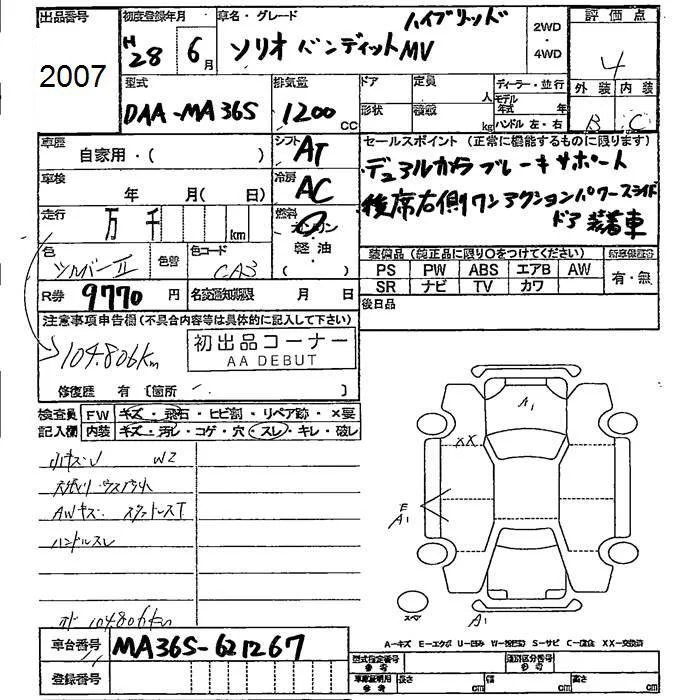 出品番号
2007
初度登録年月
H28 6月
車名・グレード
ハイブリッド
ソリオ バンディットMV
2WD・4WD
評価点
4
外装 内装
B C
型式
DAA-MA36S
排気量
1200 CC
ドア
形状
定員 人
積載 kg
ディーラー・並行
モデル年式 年
ハンドル 左・右
車歴
自家用・( )
シフト
AT
セールスポイント (正常に機能するものに限ります)
デュアルカメラブレーキサポート
後席右側ワンアクションパワースライド
ドア 装着車
車検
年 月( 日)
冷房
AC
走行
万 千 km
燃料
ガソリン
軽油・
色
シルバーII
色替
色コード
CA3
装備品 (純正品に限り○をつけてください)
PS PW ABS エアB AW
SR ナビ TV カワ
有・無
後日品
R券 9770 円
名変通知期限 月 日
注意事項申告欄 (不具合内容等は具体的に記入して下さい)
104.806km
初出品コーナー
AA DEBUT
修復歴 有 〔箇所 〕
検査員 FW キズ・飛石・ヒビ割・リペア跡・×要
記入欄 内装 キズ・汚レ・コゲ・穴・スレ・キレ・破レ
小キズ W2
AWキズ スタッドレスT
ハンドルスレ
104806km
A1
XX
E
A1
スペア
A1
車台番号 MA36S-621267
登録番号
A-キズ E-エクボ U-凹み W-波(凹凸) S-サビ C-腐食 XX-交換済
型式指定番号
参考
類別区分番号
参考
車庫証明用
参考
長さ cm 幅 cm 高さ cm